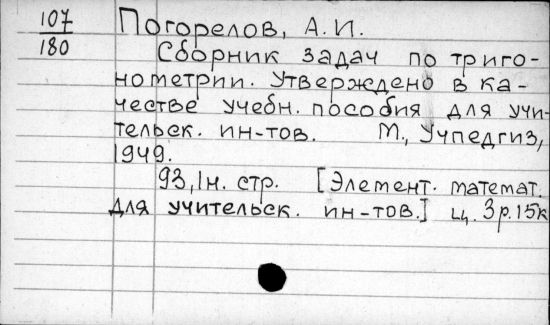 107
180
Погорелов, А.И.
Сборник задач по триго-
нометрии. Утверждено в ка-
честве учебн. пособия для учи-
тельск. ин-тов. М., Учпедгиз,
1949.
93, 1н. стр. [Элемент. математ.
для учительск. ин-тов.] ц. 3р.15к